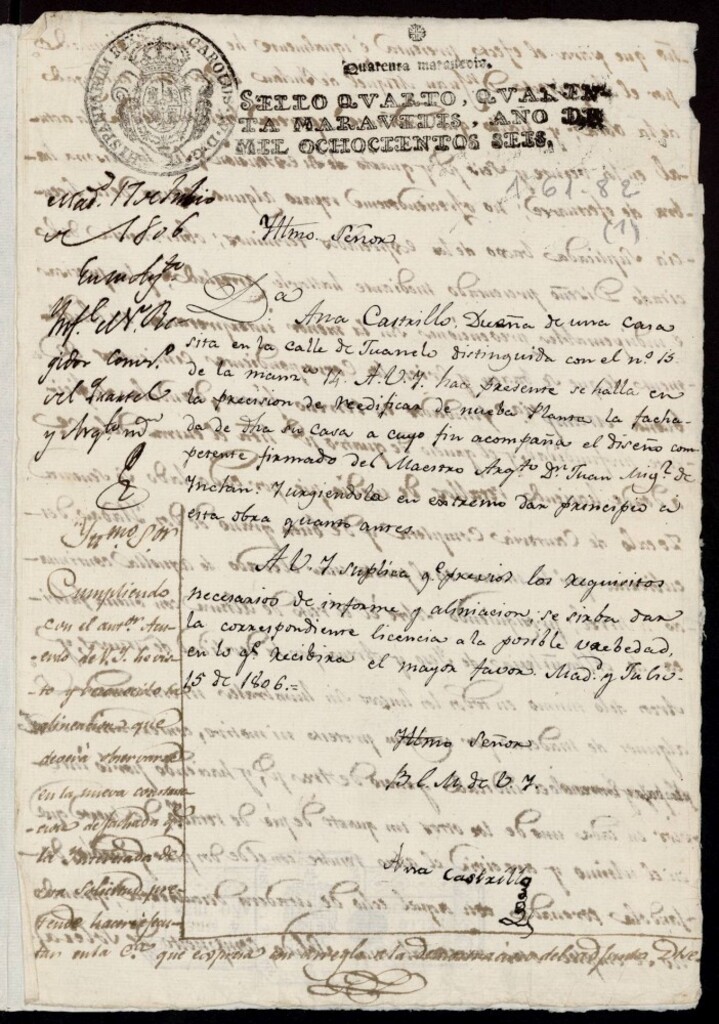 HISPANIARUM REX CAROLUS IV D G
Quarenta maravedis.
SELLO QVARTO, QVAREN-
TA MARAVEDIS, AÑO DE
MIL OCHOCIENTOS SEIS.
1-61-82
(1)
Mad.d 17 de Julio
de 1806
Yltmo. Señor
En su Ay.to
Inf.e el S.r Re-
gidor Comis.o
del Quartel
y Arq.to m.or
D.a Ana Castrillo, Dueña de una casa
sita en la calle de Juanelo distinguida con el nº 15
de la manz.a 14. A.V.Y. hac presente se halla en
la precision de reedificar de nueba Planta la facha-
da de dha su casa a cuyo fin acompaña el diseño com-
petente firmado del Maestro Arq.to D.n Juan Mig.l de
Ynclan: Y urgiendola en extremo dar principio a
esta obra quanto antes.
A.V.Y. suplica q.e previos los requisitos
necesarios de informe y aliniacion, se sirba dar
la correspondiente licencia a la posible vrebedad,
en lo q.e recibira el mayor favor. Mad.d y Julio
15 de 1806.=
Yltmo Señor
B.L.M. de V.Y.
Ana Castrillo
Yll.mo S.or
Cumpliendo
con el ant.or Acu-
erdo de V.Y. he vis-
to y reconocido la
alineacion que
deverá observarse
en la nueva construc-
cion de fachada q.e
la Ynteresada de
esta solicitud pre-
tende hacer egecu-
tar en la C.a que expresa con arreglo a la